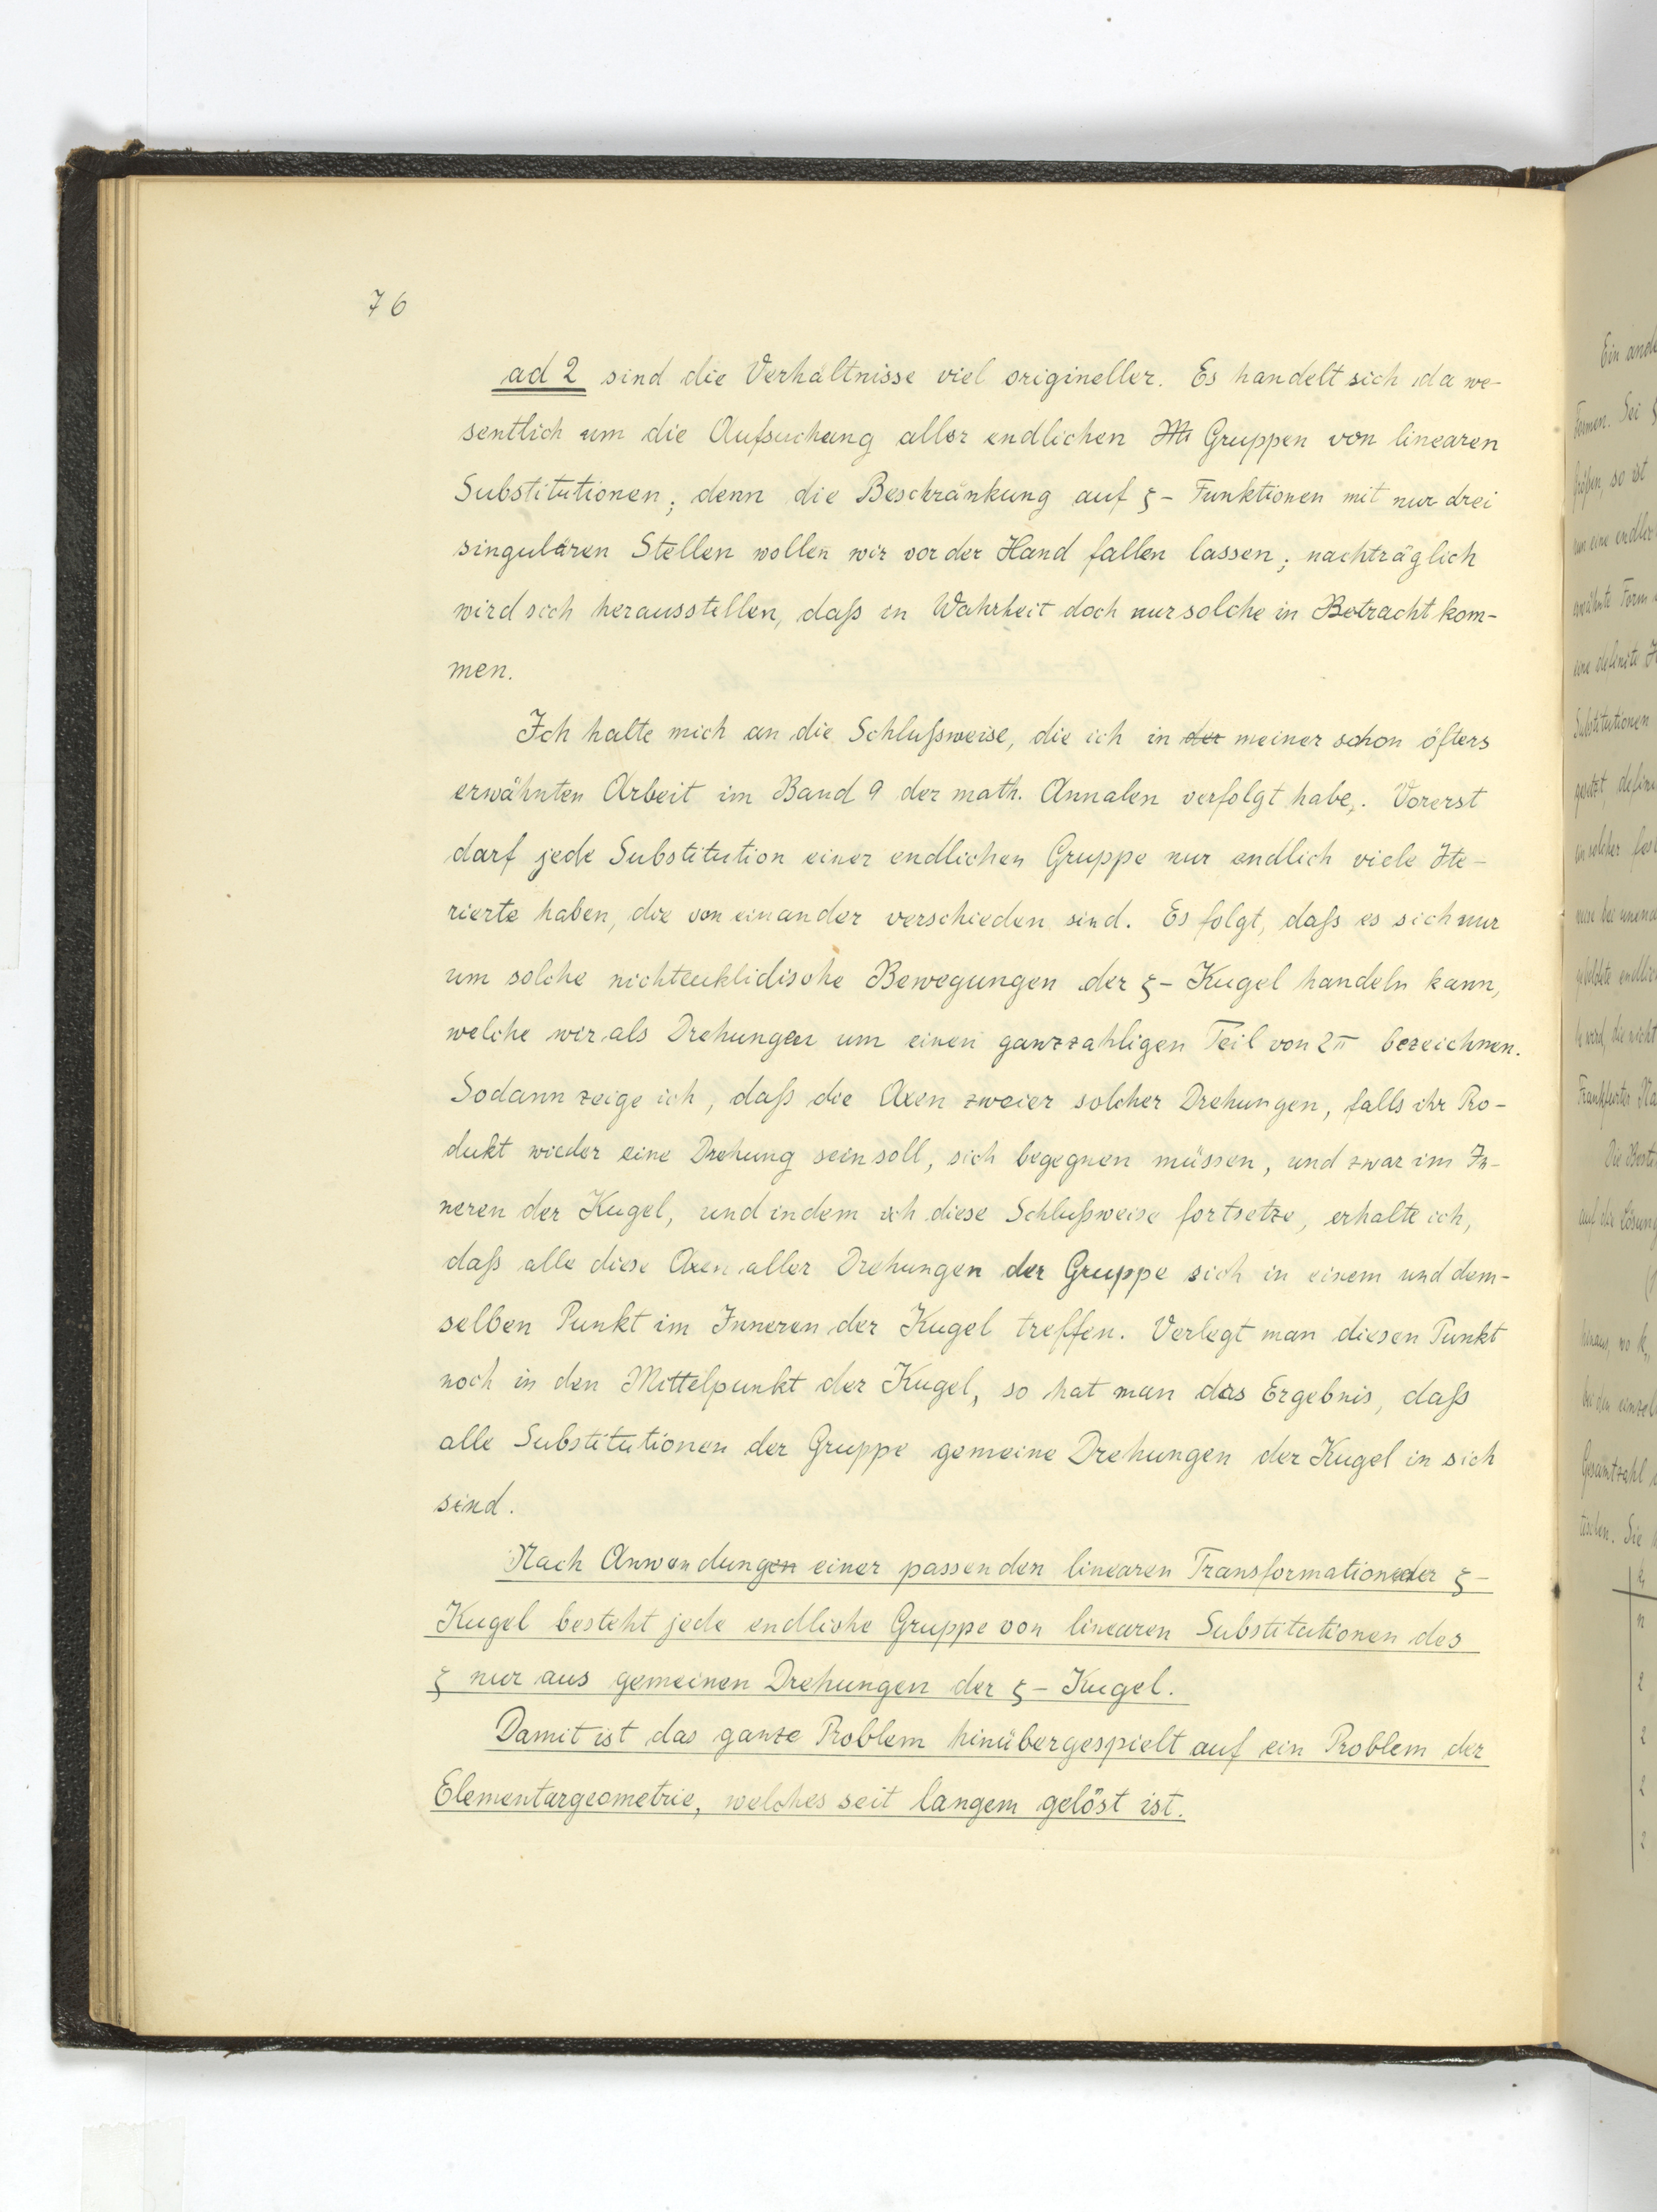 76
ad 2 sind die Verhältnisse viel origineller. Es handelt sich da we-
sentlich um die Aufsuchung aller endlichen Gruppen von linearen
Substitutionen; denn die Beschränkung auf ζ- Funktionen mit nur drei
singulären Stellen wollen wir vor der Hand fallen lassen; nachträglich
wird sich herausstellen, daß in Wahrheit doch nur solche in Betracht kom-
men.
Ich halte mich an die Schlußweise, die ich in der meiner schon öfters
erwähnten Arbeit im Band 9 der math. Annalen verfolgt habe. Vorerst
darf jede Substitution einer endlichen Gruppe nur endlich viele Ite-
rierte haben, die von einander verschieden sind. Es folgt, daß es sich nur
um solche nichteuklidische Bewegungen der ζ- Kugel handeln kann,
welche wir als Drehungen um einen ganzzahligen Teil von 2π bezeichnen.
Sodann zeige ich, daß die Axen zweier solcher Drehungen, falls ihr Pro-
dukt wieder eine Drehung sein soll, sich begegnen müssen, und zwar im In-
neren der Kugel, und indem ich diese Schlußweise fortsetze, erhalte ich,
daß alle diese Axen aller Drehungen der Gruppe sich in einem und dem-
selben Punkt im Inneren der Kugel treffen. Verlegt man diesen Punkt
noch in den Mittelpunkt der Kugel, so hat man das Ergebnis, daß
alle Substitutionen der Gruppe gemeine Drehungen der Kugel in sich
sind.
Nach Anwendungen einer passenden linearen Transformation der ζ-
Kugel besteht jede endliche Gruppe von linearen Substitutionen des
ζ nur aus gemeinen Drehungen der ζ- Kugel.
Damit ist das ganze Problem hinübergespielt auf ein Problem der
Elementargeometrie, welches seit langem gelöst ist.